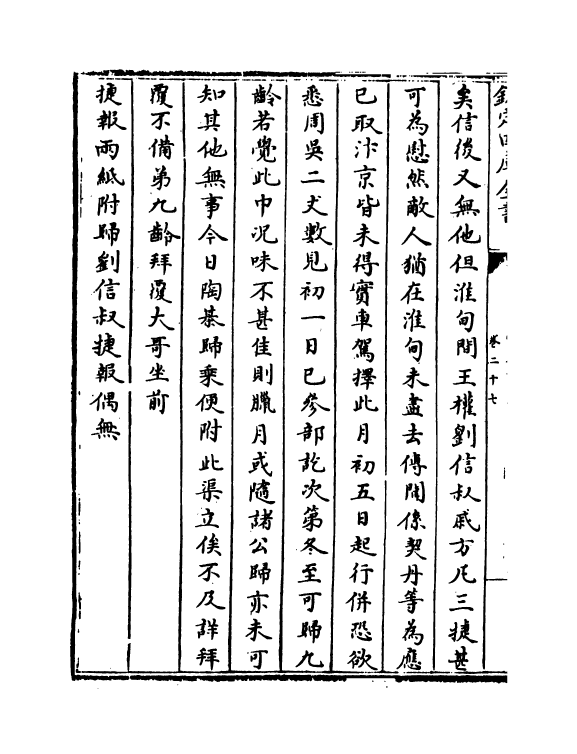 欽定四庫全書
卷二十七
矣信後又無他但淮甸間王權劉信叔戚方凡三捷甚
可為慰然敵人猶在淮甸未盡去傳聞係契丹等為應
已取汴京皆未得實車駕擇此月初五日起行併恐欲
悉周吴二丈數見初一日已參部訖次第冬至可歸九
齡若覺此中况味不甚佳則臘月或隨諸公歸亦未可
知其他無事今日陶綦歸乗便附此渠立俟不及詳拜
覆不備第九齡拜覆大哥坐前
捷報兩紙附歸劉信叔捷報偶無